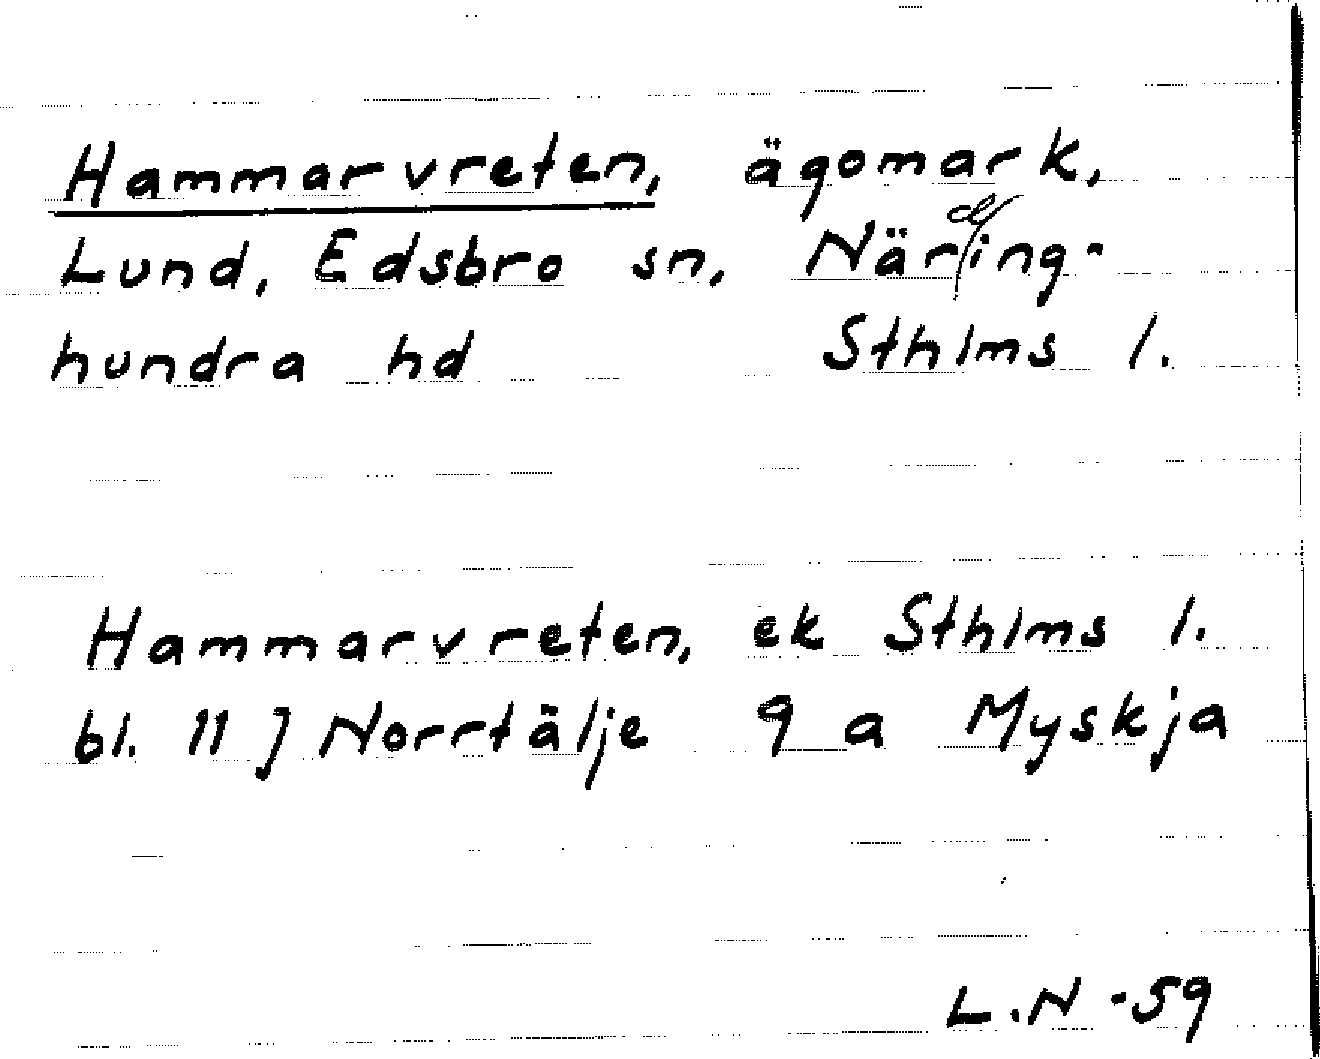 Hammarvreten, ägomark,
Lund, Edsbro sn, Närding-
hundra hd Sthlms l.
Hammarvreten, ek Sthlms l.
bl. 11 J Norrtälje 9 a Myskja
L.N -59